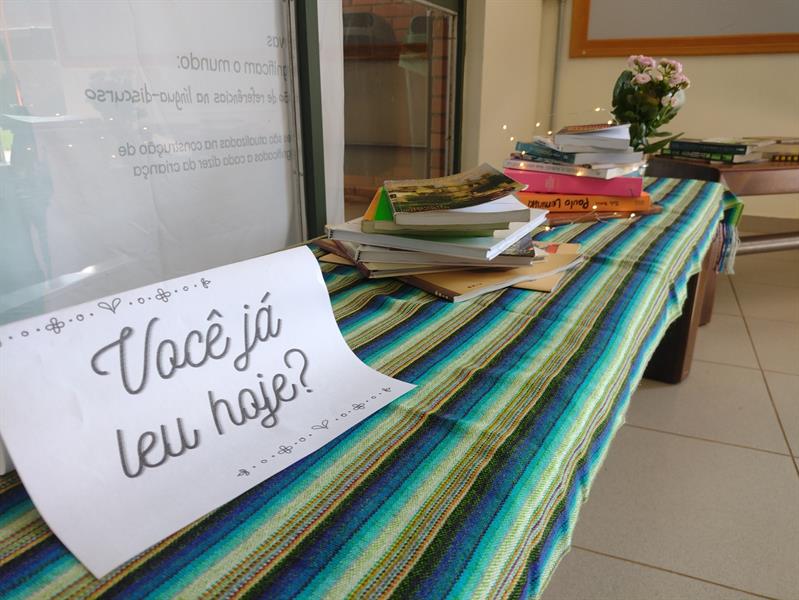 vas
gnificam o mundo:
ão de referências na língua-discurso
es são atualizadas na construção de
gnificados a cada dizer da criança
Você já
leu hoje?
Paulo Leminski